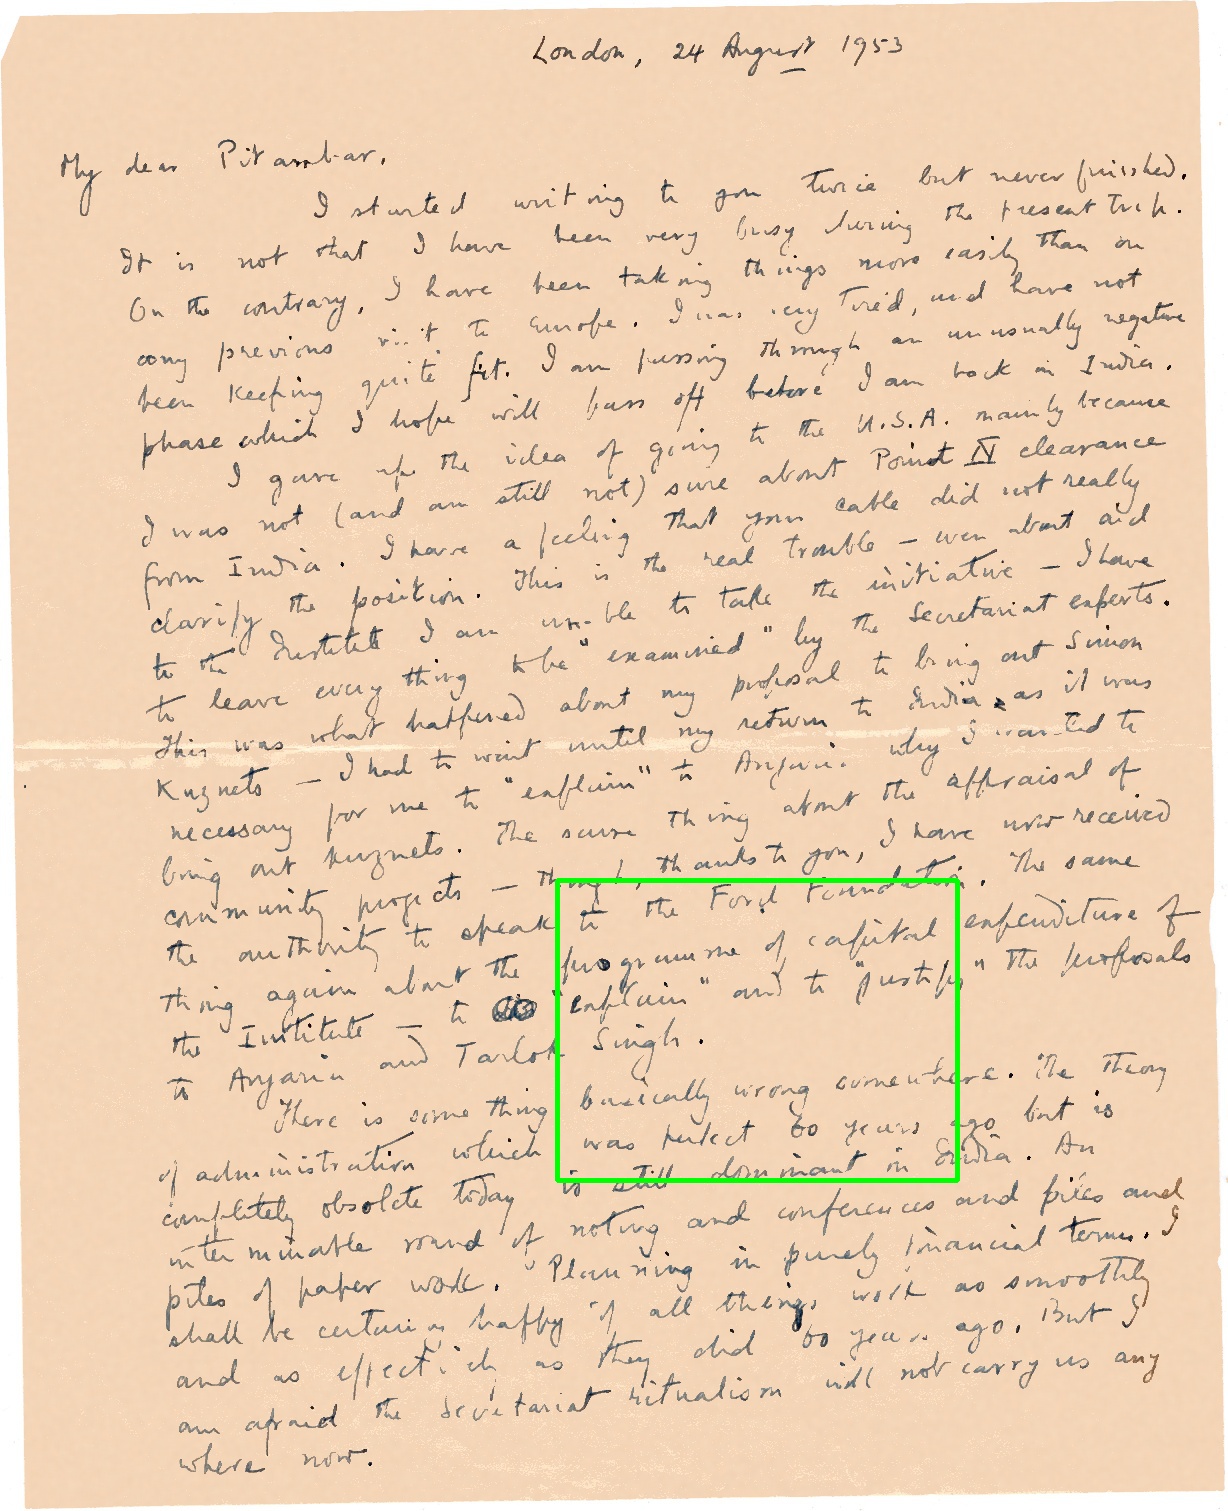 London, 24 August 1953
My dear Pitambar,
I started writing to you twice but never finished.
It is not that I have been very busy during the present trip.
On the contrary, I have been taking things more easily than on
any previous visit to Europe. I was very tired, and have not
been keeping quite fit. I am passing through an unusually negative
phase which I hope will pass off before I am back in India.
I gave up the idea of going to the U.S.A. mainly because
I was not (and am still not) sure about Point IV clearance
from India. I have a feeling that your cable did not really
clarify the position. This is the real trouble — even about aid
to the Institute I am unable to take the initiative — I have
to leave every thing to be "examined" by the Secretariat experts.
This was what happened about my proposal to bring out Simon
Kuznets — I had to wait until my return to India, as it was
necessary for me to "explain" to Anjaria why I wanted to
bring out Kuznets. The same thing about the appraisal of
community projects — though, thanks to you, I have now received
the authority to speak to the Ford Foundation. The same
thing again about the programme of capital expenditure of
the Institute — to "explain" and to "justify" the proposals
to Anjaria and Tarlok Singh.
There is some thing basically wrong somewhere. The theory
of administration which was perfect 60 years ago but is
completely obsolete today is still dominant in India. An
interminable round of noting and conferences and files and
piles of paper work. Planning in purely financial terms. I
shall be certainly happy if all things work as smoothly
and as effectively as they did 60 years ago. But I
am afraid the Secretariat ritualism will not carry us any
where now.